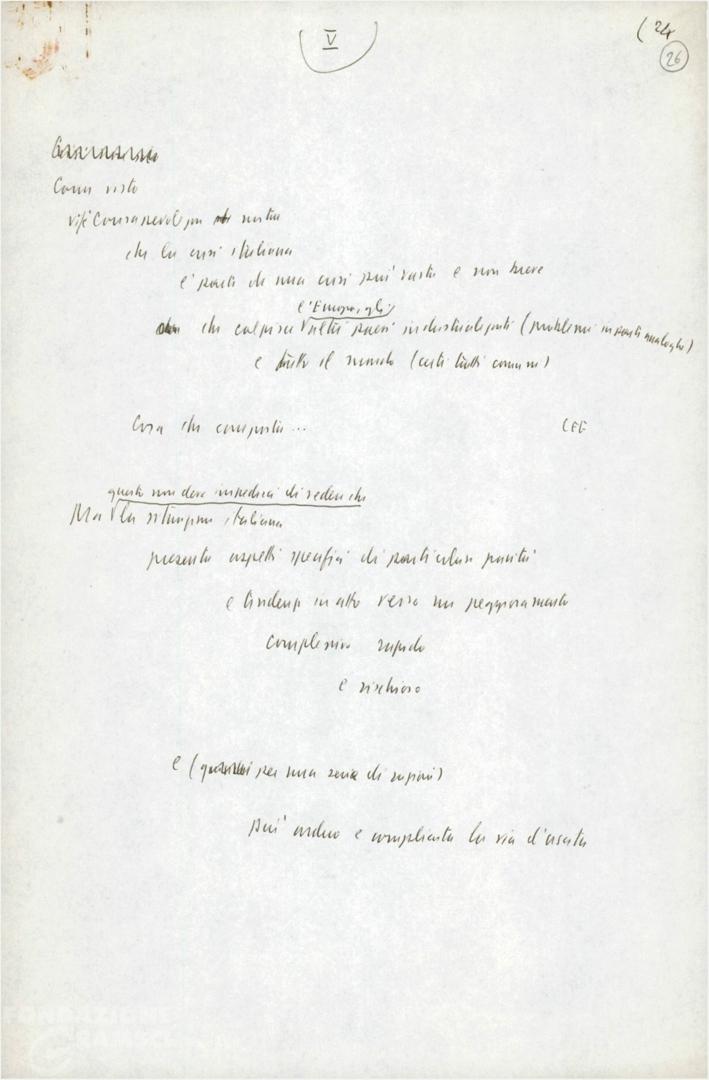 V
(24
26
Come visto
vi è consapevolezza nostra
che la crisi italiana
è parte di una crisi più vasta e non breve
l'Europa, gli
che colpisce altri paesi industrializzati (problemi in parte analoghi)
e tutto il mondo (certi tratti comuni)
Cosa che comporta... CEE
questo non deve impedirci di vedere che
Ma la situazione italiana
presenta aspetti specifici di particolare gravità
e tendenze in atto verso un peggioramento
complessivo rapido
e rischioso
e (per una serie di ragioni)
più arduo e complicata la via d'uscita
FONDAZIONE
GRAMSCI